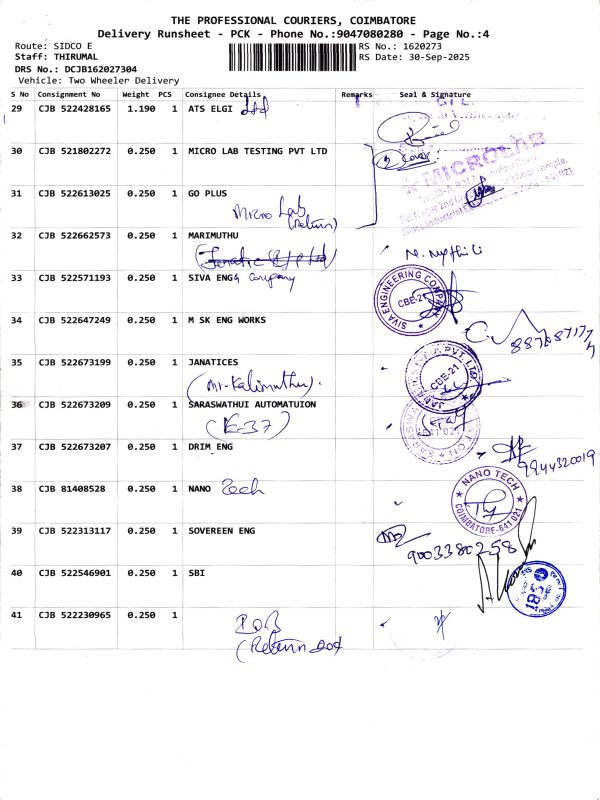 THE PROFESSIONAL COURIERS, COIMBATORE
Delivery Runsheet - PCK - Phone No.:9047080280 - Page No.:4
Route: SIDCO E
RS No.: 1620273
Staff: THIRUMAL
RS Date: 30-Sep-2025
DRS No.: DCJB162027304
Vehicle: Two Wheeler Delivery
S No Consignment No Weight PCS Consignee Details Remarks Seal & Signature
29 CJB 522428165 1.190 1 ATS ELGI Ltd
30 CJB 521802272 0.250 1 MICRO LAB TESTING PVT LTD
2 Cover
MICROLAB
31 CJB 522613025 0.250 1 GO PLUS
Micro Lab
(Return)
32 CJB 522662573 0.250 1 MARIMUTHU
33 CJB 522571193 0.250 1 SIVA ENGG Company
SIVA ENGINEERING COMPANY
CBE-21
34 CJB 522647249 0.250 1 M SK ENG WORKS
35 CJB 522673199 0.250 1 JANATICES
(Mr-Kalimuthu).
CBE-21
36 CJB 522673209 0.250 1 SARASWATHUI AUTOMATUION
(E-37)
37 CJB 522673207 0.250 1 DRIM ENG
9944320019
38 CJB 81408528 0.250 1 NANO Tech
NANO TECH
COIMBATORE-641 021
39 CJB 522313117 0.250 1 SOVEREEN ENG
9003380258
40 CJB 522546901 0.250 1 SBI
41 CJB 522230965 0.250 1
(Return